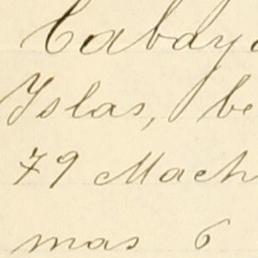 Cabay
Yslas, be
79 Mach
mas 6